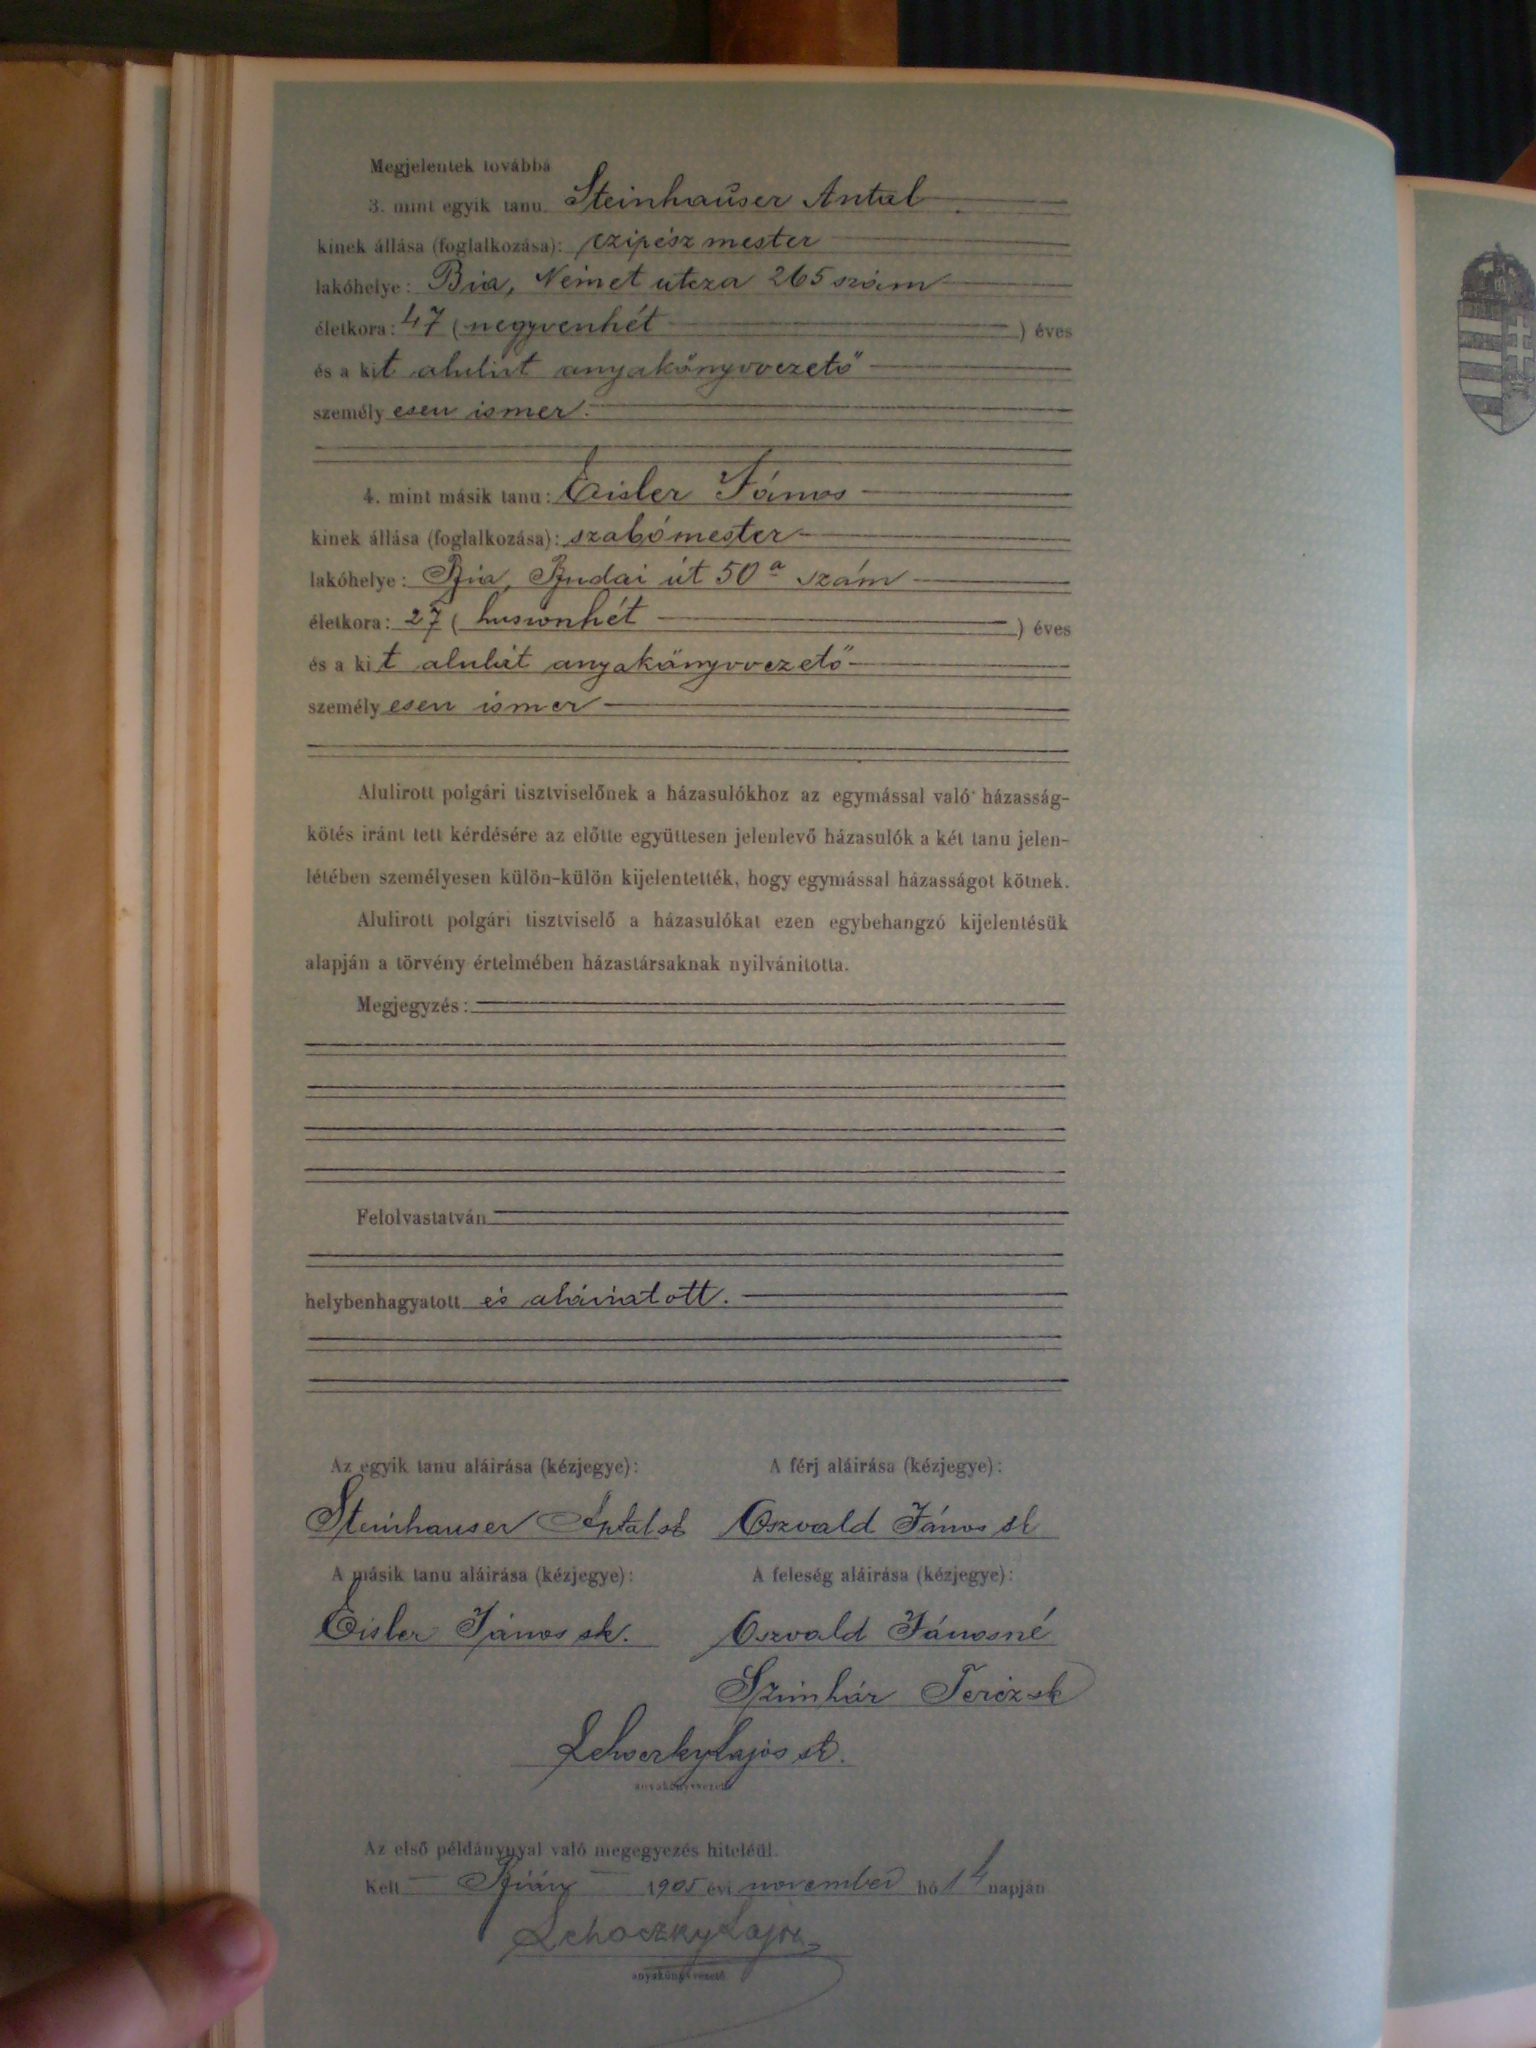 Megjelentek továbbá
3. mint egyik tanu Steinhauser Antal
kinek állása (foglalkozása): czipész mester
lakóhelye: Bia, Német utcza 265 szám
életkora: 47 (negyvenhét ) éves
és a kit alulirt anyakönyvvezető
személyesen ismer.
4. mint másik tanu: Eisler János
kinek állása (foglalkozása): szabómester
lakóhelye: Bia, Budai út 50a szám
életkora: 27 (huszonhét ) éves
és a kit alulirt anyakönyvvezető
személyesen ismer
Alulirott polgári tisztviselőnek a házasulókhoz az egymással való házasság-
kötés iránt tett kérdésére az előtte együttesen jelenlevő házasulók a két tanu jelen-
létében személyesen külön-külön kijelentették, hogy egymással házasságot kötnek.
Alulirott polgári tisztviselő a házasulókat ezen egybehangzó kijelentésük
alapján a törvény értelmében házastársaknak nyilvánitotta.
Megjegyzés:
Felolvastatván
helybenhagyatott és aláiratott.
Az egyik tanu aláirása (kézjegye): A férj aláirása (kézjegye):
Steinhauser Antal sk Oszvald János sk
A másik tanu aláirása (kézjegye): A feleség aláirása (kézjegye):
Eisler János sk. Oszvald Jánosné
Szinhár Teréz sk
Lehoczky Lajos sk.
anyakönyvvezető
Az első példánynyal való megegyezés hiteléül.
Kelt Bián 1905 évi november hó 14 napján
Lehoczky Lajos
anyakönyvvezető